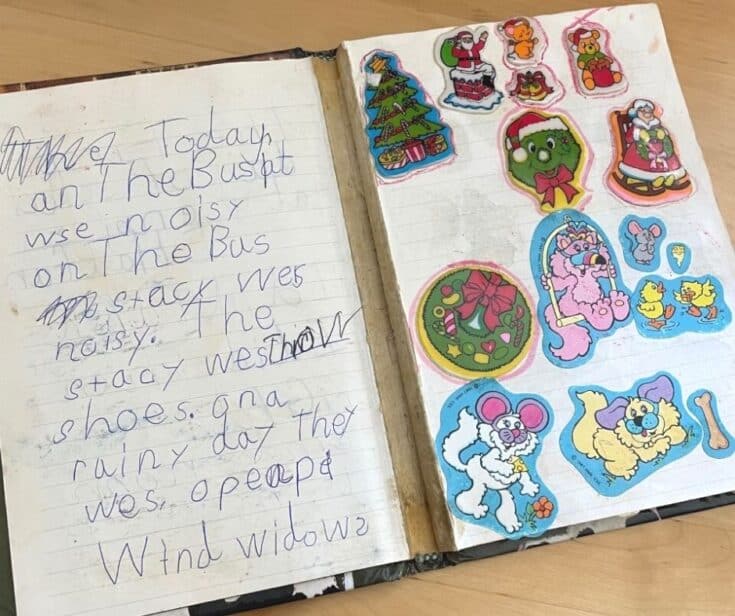 Today
an The Bus pt
wse noisy
on The Bus
stacy wes
noisy. The
stacy wes Thow
shoes. and
rainy day They
wes. opeapd
Wind widows